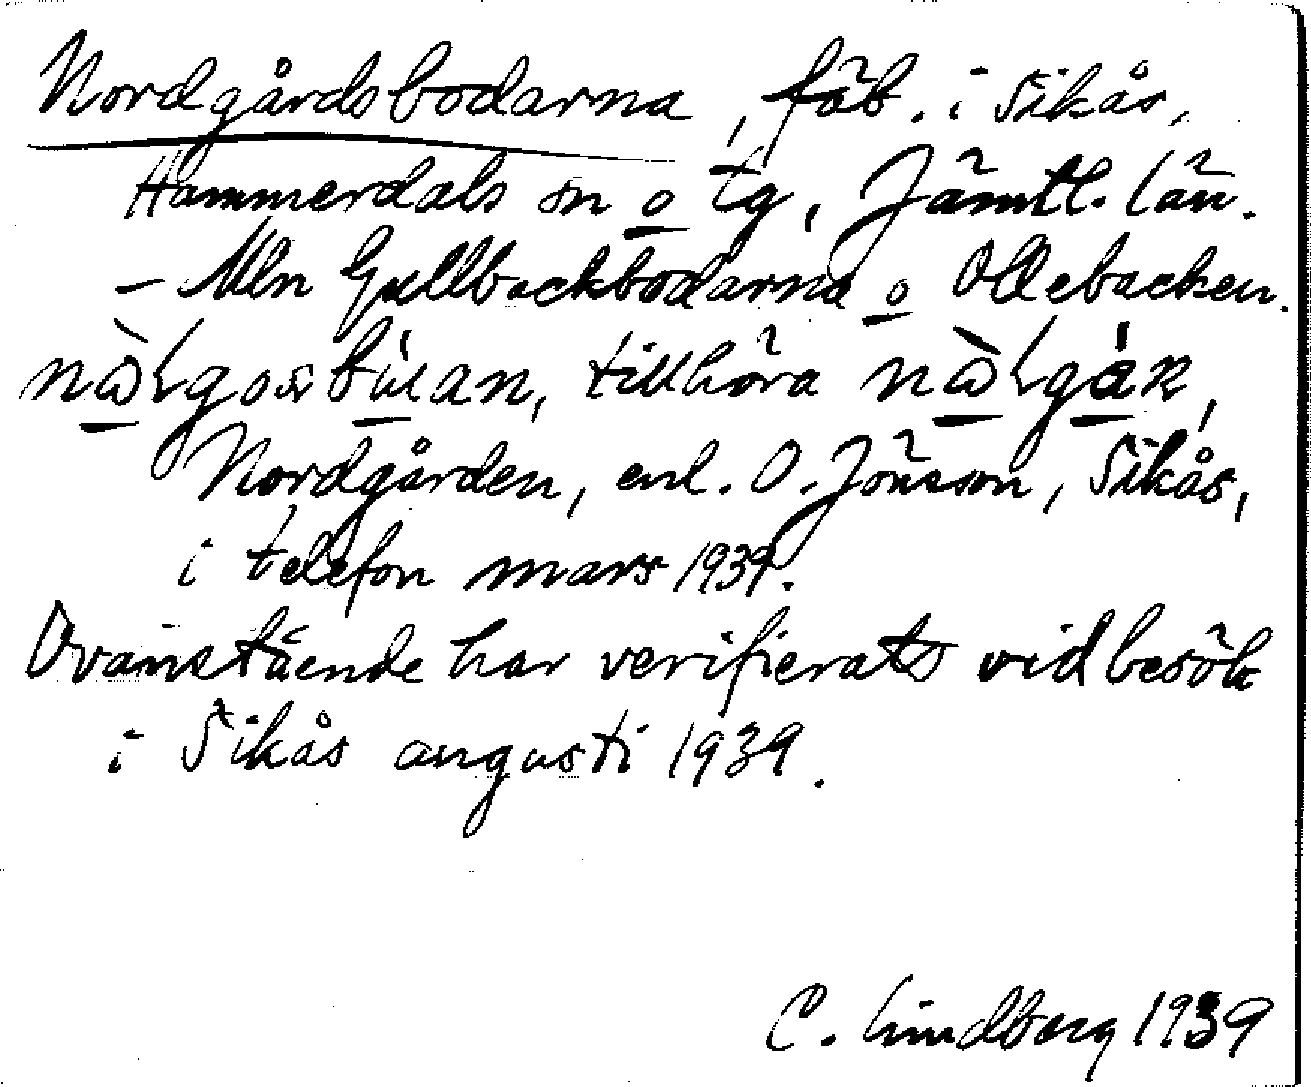 Nordgårdsbodarna, fäb. i Sikås,
Hammerdals sn o tg, Jämtl. län.
– Mln Gullbackbodarna o Ollebacken.
tillhöra
Nordgården, enl. O. Jonsson, Sikås,
i telefon mars 1939.
Ovanstående har verifierats vid besök
i Sikås augusti 1939.
C. Lindberg 1939